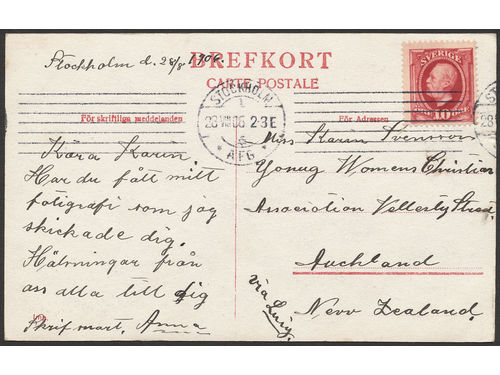 Stockholm d. 28/8 1906.
BREFKORT
CARTE POSTALE
För skriftliga meddelanden
För Adressen
SVERIGE
10
STOCKHOLM
1
28 VIII 06 2-3 E
AFG
Kära Karin.
Har du fått mitt
fotigrafi som jag
skickade dig.
Hälsningar från
oss alla till dig
Skrif snart. Anna
Miss Karin Svensson
Yonug Womens Christian
Association Vellersty Street,
Auckland
New Zealand.
via